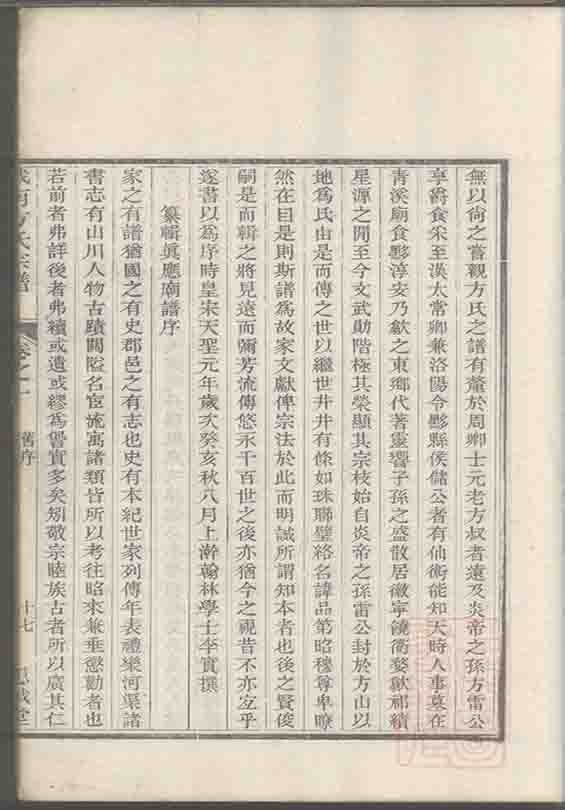 無以尙之嘗觀方氏之譜有蕫於周鄕士元老方叔者遠及炎帝之孫方雷公
享爵食采至漢太常卿兼洛陽令黟縣侯儲公者有仙術能知天時人事墓在
靑溪廟食黟淳安乃歙之東鄉代著靈響子孫之盛散居徽寧饒衢婺歙祁績
星源之間至今文武勛階極其榮顯其宗枝始自炎帝之孫雷公封於方山以
地爲氏由是而傳之世以繼世井井有條如珠聯璧絡名諱品第昭穆尊卑瞭
然在目是則斯譜爲故家文獻俾宗法於此而明誠所謂知本者也後之賢俊
嗣是而輯之將見遠而彌芳流傳悠永千百世之後亦猶今之視昔不亦宜乎
遂書以爲序時皇宋天聖元年歲次癸亥秋八月上澣翰林學士李實撰
纂輯眞應廟譜序
家之有譜猶國之有史郡邑之有志也史有本紀世家列傳年表禮樂河渠諸
書志有山川人物古蹟關隘名宦流寓諸類皆所以考往昭來兼垂懲勸者也
若前者弗詳後者弗續或遺或繆爲咎實多矣矧敬宗睦族古者所以廣其仁
方氏宗譜 卷之一 舊序 十七